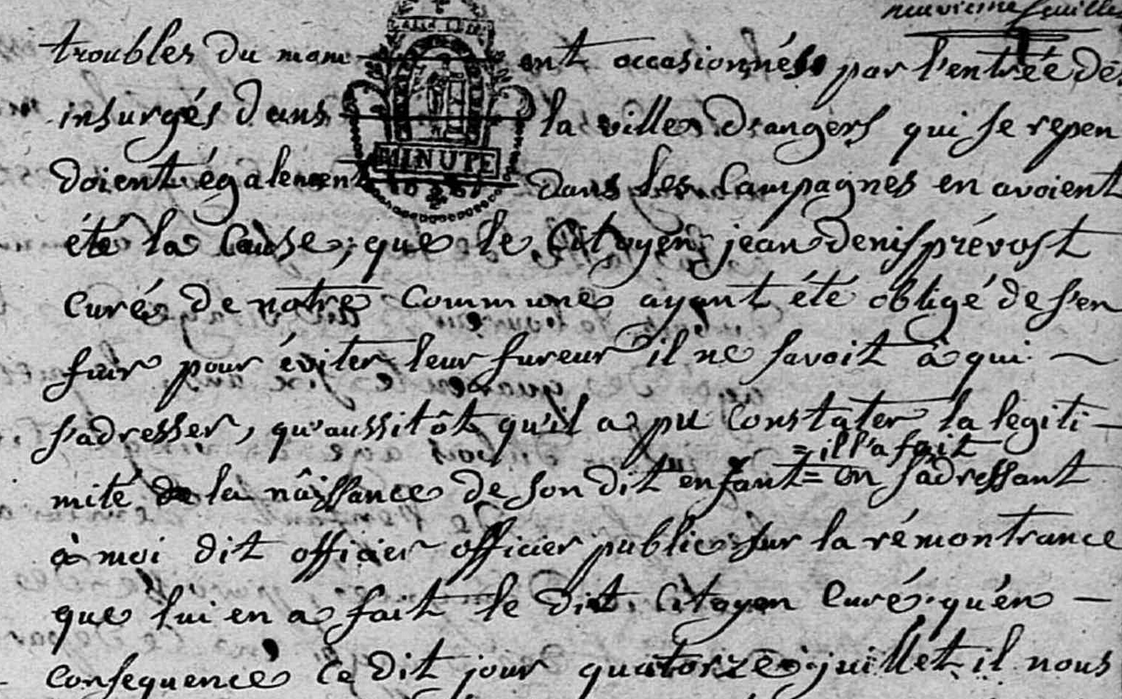 neuvieme feuille
troubles du mom ent occasionnés par l'entrée des
insurgés dans la ville d'angers qui se repen
doient également dans les campagnes en avoient
MINUTE
été la cause; que le Citoyen jean denis prévost
curé de notre commune ayant été obligé de s'en
fuir pour éviter leur fureur il ne savoit à qui
s'adresser, qu'aussitôt qu'il a pu constater la legiti-
= il l'a fait
mité de la nâissance de son dit enfant = en s'adressant
à moi dit officier officier public sur la rémontrance
que lui en a fait le dit Citoyen Curé qu'en
consequence ce dit jour quatorze juillet il nous